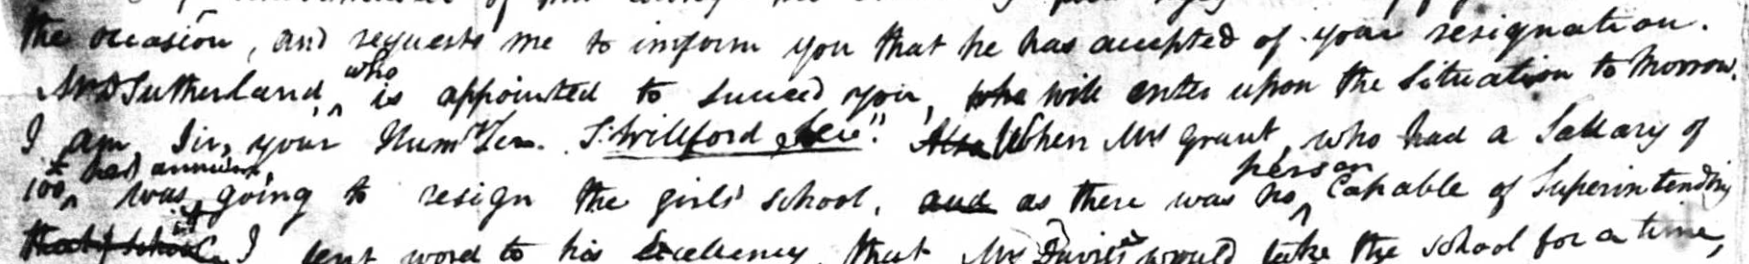 the occasion, and requests me to inform you that he has accepted of your resignation.
Mr Sutherland, who is appointed to succeed you, who will enter upon the Situation to Morrow.
I am, Sir, your Humle Ser. T. Willford Sec." Also When Mrs Grant, who had a Sallary of
100£ per annum, was going to resign the girls' school, and as there was no person Capable of Superintending
that school it, I sent word to his Excellency, that Mrs Davis would take the school for a time,